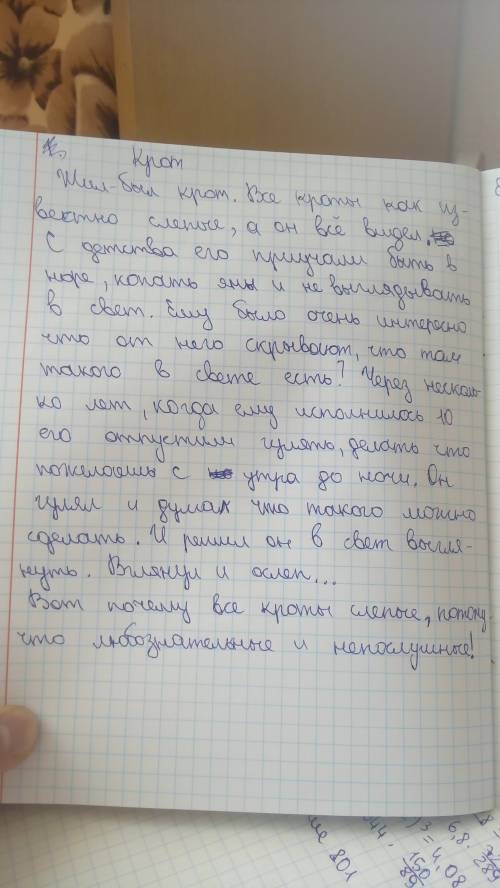 Крот
Жил-был крот. Все кроты как из-
вектно слепые, а он всё видел.
С детства его приучали быть в
норе, копать ямы и не выглядывать
в свет. Ему было очень интересно
что от него скрывают, что там
такого в свете есть? Через несколь
ко лет, когда ему исполнилось 10
его отпустили гулять, делать что
пожелаешь с утра до ночи. Он
гулял и думал что такого можно
сделать. И решил он в свет выгля-
нуть. Взглянул и ослеп...
Вот почему все кроты слепые, потому
что любознательные и непослушные!
801